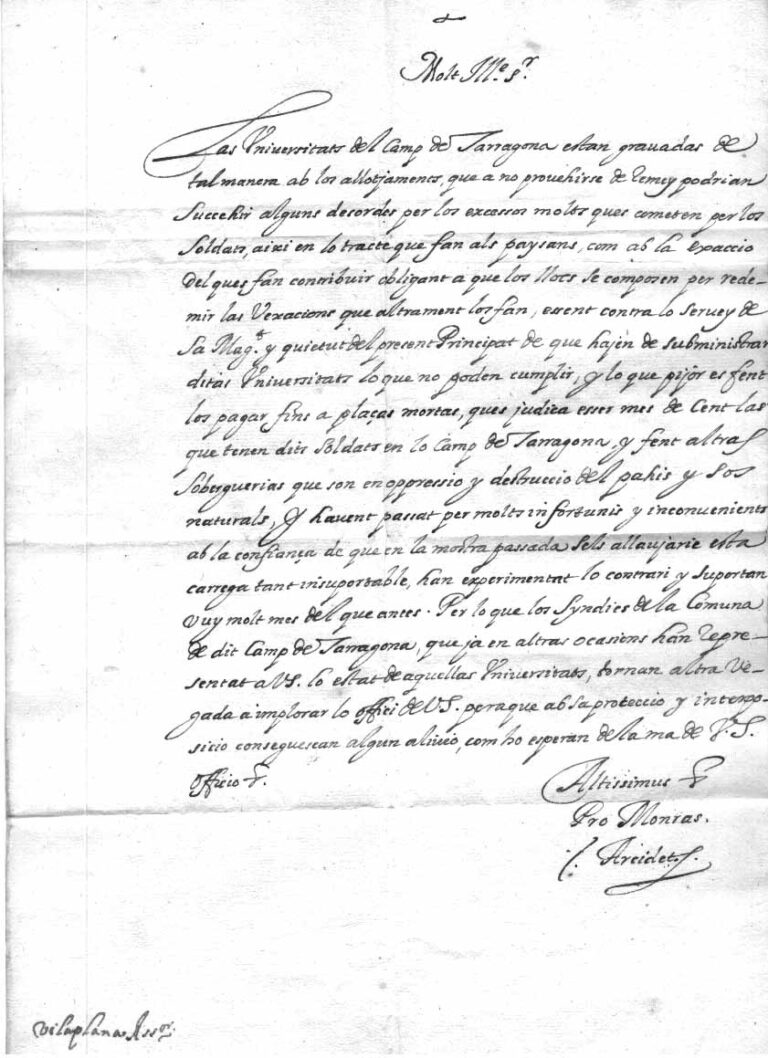 Molt Ill.e S.r
Las Universitats del Camp de Tarragona estan gravadas de
tal manera ab los allotjaments, que a no provehirse de remey podrian
succehir alguns desordes per los excessos molts ques cometen per los
soldats, aixi en lo tracte que fan als paysans, com ab la exaccio
del ques fan contribuir obligant a que los llocs se composen per rede-
mir las vexacions que altrament los fan, essent contra lo servey de
Sa Mag.t y quietut del present Principat de que hajen de subministrar
ditas Universitats lo que no poden cumplir, y lo que pijor es fent
los pagar fins a plaças mortas, ques judica esser mes de Cent las
que tenen dits soldats en lo Camp de Tarragona, y fent altras
soberguerias que son en oppressio y destruccio del pahis y sos
naturals, y havent passat per molts infortunis y inconvenients
ab la confiança de que en la mostra passada sels allaujarie esta
carrega tant insuportable, han experimentat lo contrari y suportan
vuy molt mes del que antes. Per lo que los Syndics de la Comuna
de dit Camp de Tarragona, que ja en altras ocasions han repre-
sentat a V.S. lo estat de aquellas Universitats, tornan altra ve-
gada a implorar lo offici de V.S. pera que ab sa proteccio y interpo-
sicio conseguescan algun alivio, com ho esperan de la ma de V.S.
Officio
Altissimus
Pro Monras.
Vilaplana Ass.or